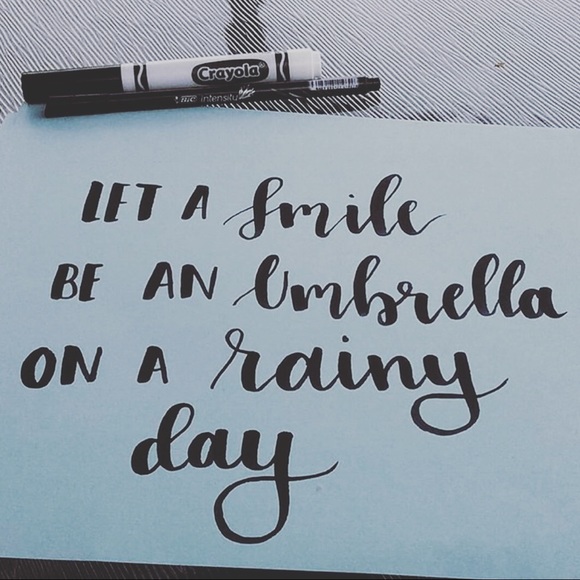 Crayola
BIC intensity
LET A Smile
BE AN Umbrella
ON A rainy
day